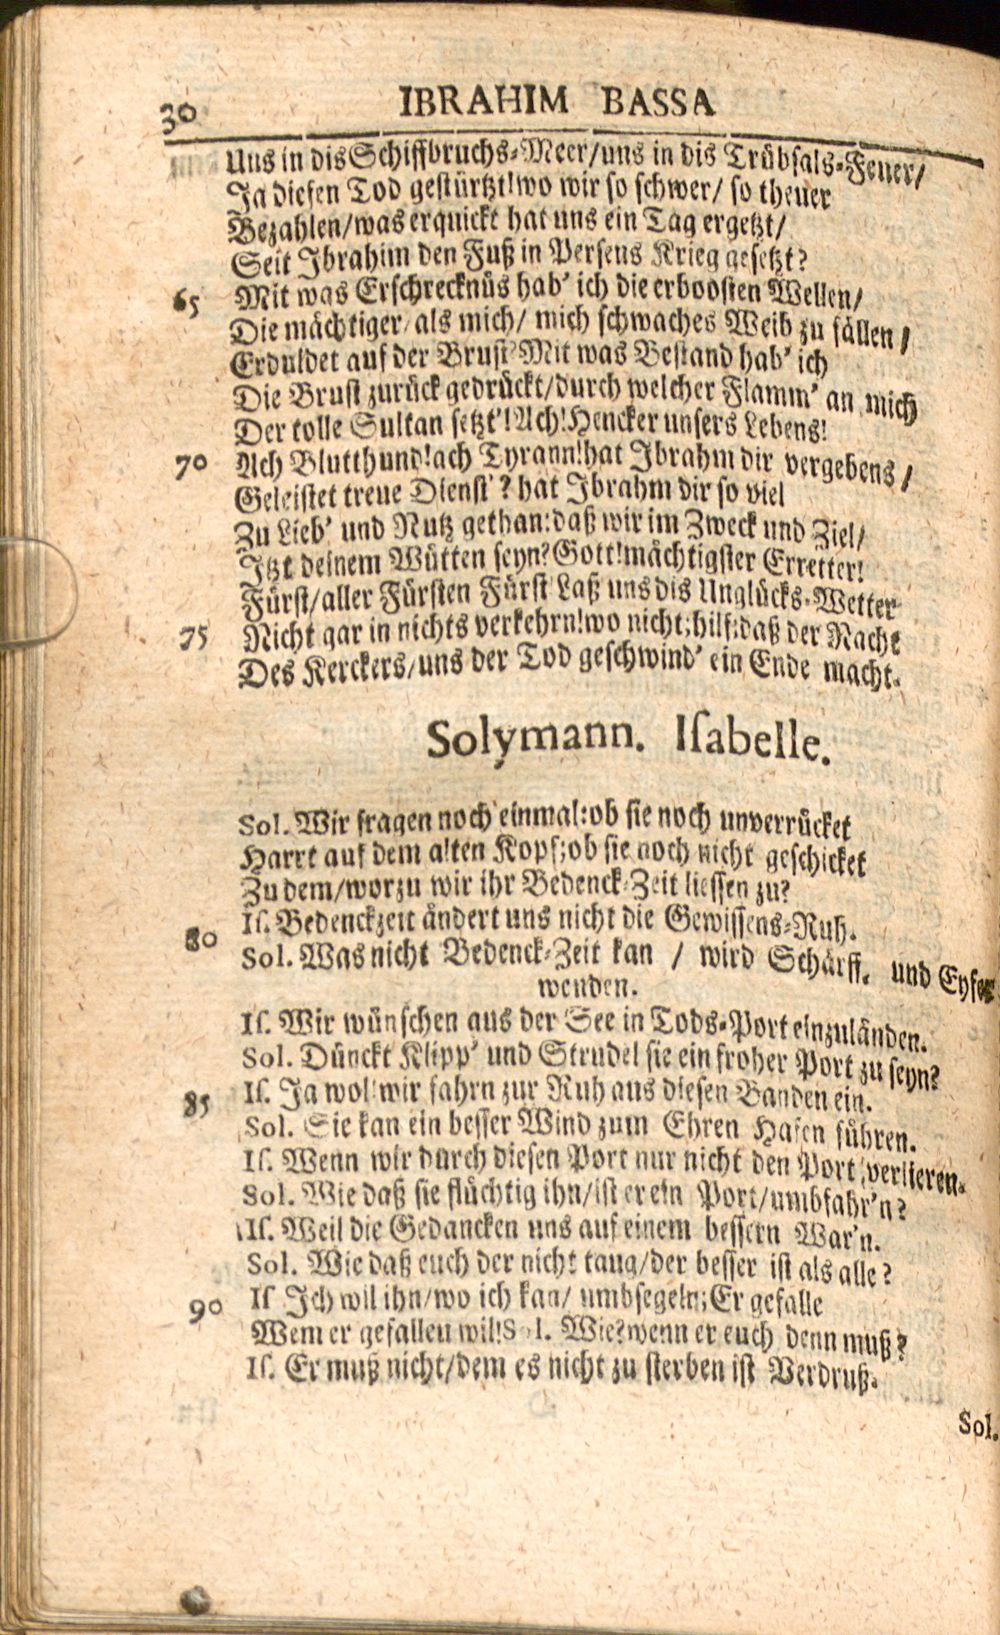 30 IBRAHIM BASSA
Uns in dis Schiffbruchs-Meer/uns in dis Trübsals-Feuer/
Ja diesen Tod gestürtzt!wo wir so schwer/ so theuer
Bezahlen/was erquickt hat uns ein Tag ergetzt/
Seit Ibrahim den Fuß in Persens Krieg gesetzt?
65 Mit was Erschrecknüs hab' ich die erboosten Wellen/
Die mächtiger/als mich/ mich schwaches Weib zu fällen/
Erduldet auf der Brust? Mit was Bestand hab' ich
Die Brust zurück gedrückt/durch welcher Flamm' an mich
Der tolle Sultan setzt'!Ach!Hencker unsers Lebens!
70 Ach Blutthund!ach Tyrann!hat Ibrahm dir vergebens/
Geleistet treue Dienst'? hat Ibrahm dir so viel
Zu Lieb' und Nutz gethan:daß wir im Zweck und Ziel/
Itzt deinem Wütten seyn?Gott!mächtigster Erretter!
Fürst/aller Fürsten Fürst Laß uns dis Unglücks-Wetter
75 Nicht gar in nichts verkehrn!wo nicht;hilf:daß der Nacht
Des Kerckers/uns der Tod geschwind' ein Ende macht.
Solymann. Iſabelle.
Sol. Wir fragen noch einmal:ob sie noch unverrücket
Harrt auf dem alten Kopf;ob sie noch nicht geschicket
Zu dem/worzu wir ihr Bedenck-Zeit liessen zu?
80 Iſ. Bedenckzeit ändert uns nicht die Gewissens-Ruh.
Sol. Was nicht Bedenck-Zeit kan / wird Schärff. und Eyfer
wenden.
Iſ. Wir wünschen aus der See in Tods-Port einzuländen.
Sol. Dünckt Klipp' und Strudel sie ein froher Port zu seyn?
85 Iſ. Ja wol!wir fahrn zur Ruh aus diesen Banden ein.
Sol. Sie kan ein besser Wind zum Ehren Hafen führen.
Iſ. Wenn wir durch diesen Port nur nicht den Port verlieren.
Sol. Wie daß sie flüchtig ihn/ist er ein Port/umbfahr'n?
Iſ. Weil die Gedancken uns auf einem bessern War'n.
Sol. Wie daß euch der nicht taug/der besser ist als alle?
90 Iſ Ich wil ihn/wo ich kan/ umbsegeln;Er gefalle
Wem er gefallen wil!Sol. Wie?wenn er euch denn muß?
Iſ. Er muß nicht/dem es nicht zu sterben ist Verdruß.
Sol.